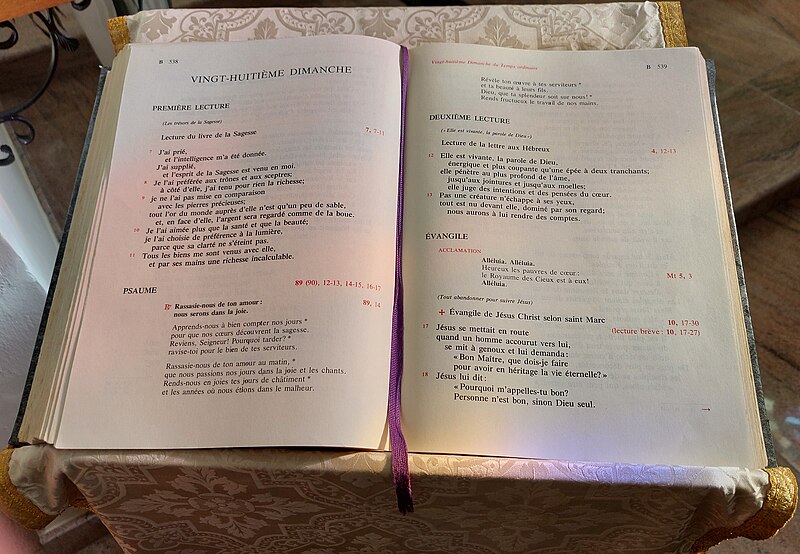 B 538
VINGT-HUITIÈME DIMANCHE
PREMIÈRE LECTURE
(Les trésors de la Sagesse)
Lecture du livre de la Sagesse 7, 7-11
7 J'ai prié,
et l'intelligence m'a été donnée.
J'ai supplié,
et l'esprit de la Sagesse est venu en moi.
8 Je l'ai préférée aux trônes et aux sceptres;
à côté d'elle, j'ai tenu pour rien la richesse;
9 je ne l'ai pas mise en comparaison
avec les pierres précieuses;
tout l'or du monde auprès d'elle n'est qu'un peu de sable,
et, en face d'elle, l'argent sera regardé comme de la boue.
10 Je l'ai aimée plus que la santé et que la beauté;
je l'ai choisie de préférence à la lumière,
parce que sa clarté ne s'éteint pas.
11 Tous les biens me sont venus avec elle,
et par ses mains une richesse incalculable.
PSAUME 89 (90), 12-13, 14-15, 16-17
R° Rassasie-nous de ton amour : 89, 14
nous serons dans la joie.
Apprends-nous à bien compter nos jours *
pour que nos cœurs découvrent la sagesse.
Reviens, Seigneur! Pourquoi tarder? *
ravise-toi pour le bien de tes serviteurs.
Rassasie-nous de ton amour au matin, *
que nous passions nos jours dans la joie et les chants.
Rends-nous en joies tes jours de châtiment *
et les années où nous étions dans le malheur.
Vingt-huitième Dimanche du Temps ordinaire B 539
Révèle ton œuvre à tes serviteurs *
et ta beauté à leurs fils.
Dieu, que ta splendeur soit sur nous! *
Rends fructueux le travail de nos mains.
DEUXIÈME LECTURE
(«Elle est vivante, la parole de Dieu»)
Lecture de la lettre aux Hébreux 4, 12-13
12 Elle est vivante, la parole de Dieu,
énergique et plus coupante qu'une épée à deux tranchants;
elle pénètre au plus profond de l'âme,
jusqu'aux jointures et jusqu'aux moelles;
elle juge des intentions et des pensées du cœur.
13 Pas une créature n'échappe à ses yeux,
tout est nu devant elle, dominé par son regard;
nous aurons à lui rendre des comptes.
ÉVANGILE
ACCLAMATION
Alléluia. Alléluia.
Heureux les pauvres de cœur :
le Royaume des Cieux est à eux! Mt 5, 3
Alléluia.
(Tout abandonner pour suivre Jésus)
+ Évangile de Jésus Christ selon saint Marc 10, 17-30
17 Jésus se mettait en route (lecture brève : 10, 17-27)
quand un homme accourut vers lui,
se mit à genoux et lui demanda :
« Bon Maître, que dois-je faire
pour avoir en héritage la vie éternelle? »
18 Jésus lui dit :
« Pourquoi m'appelles-tu bon?
Personne n'est bon, sinon Dieu seul.
→